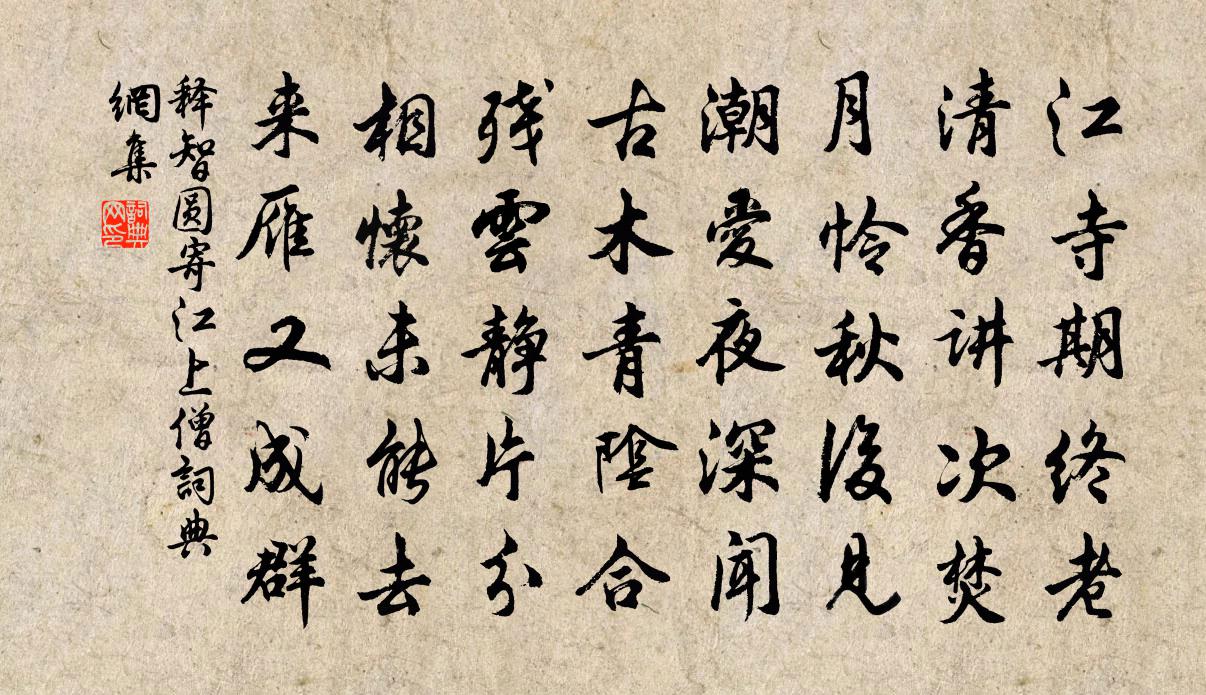 江寺期终老
清香讲次焚
月怜秋后见
潮爱夜深闻
古木青阴合
残雲静片分
相懷未能去
来雁又成群
释智圆寄江上僧詞典
網集
詞典
网印